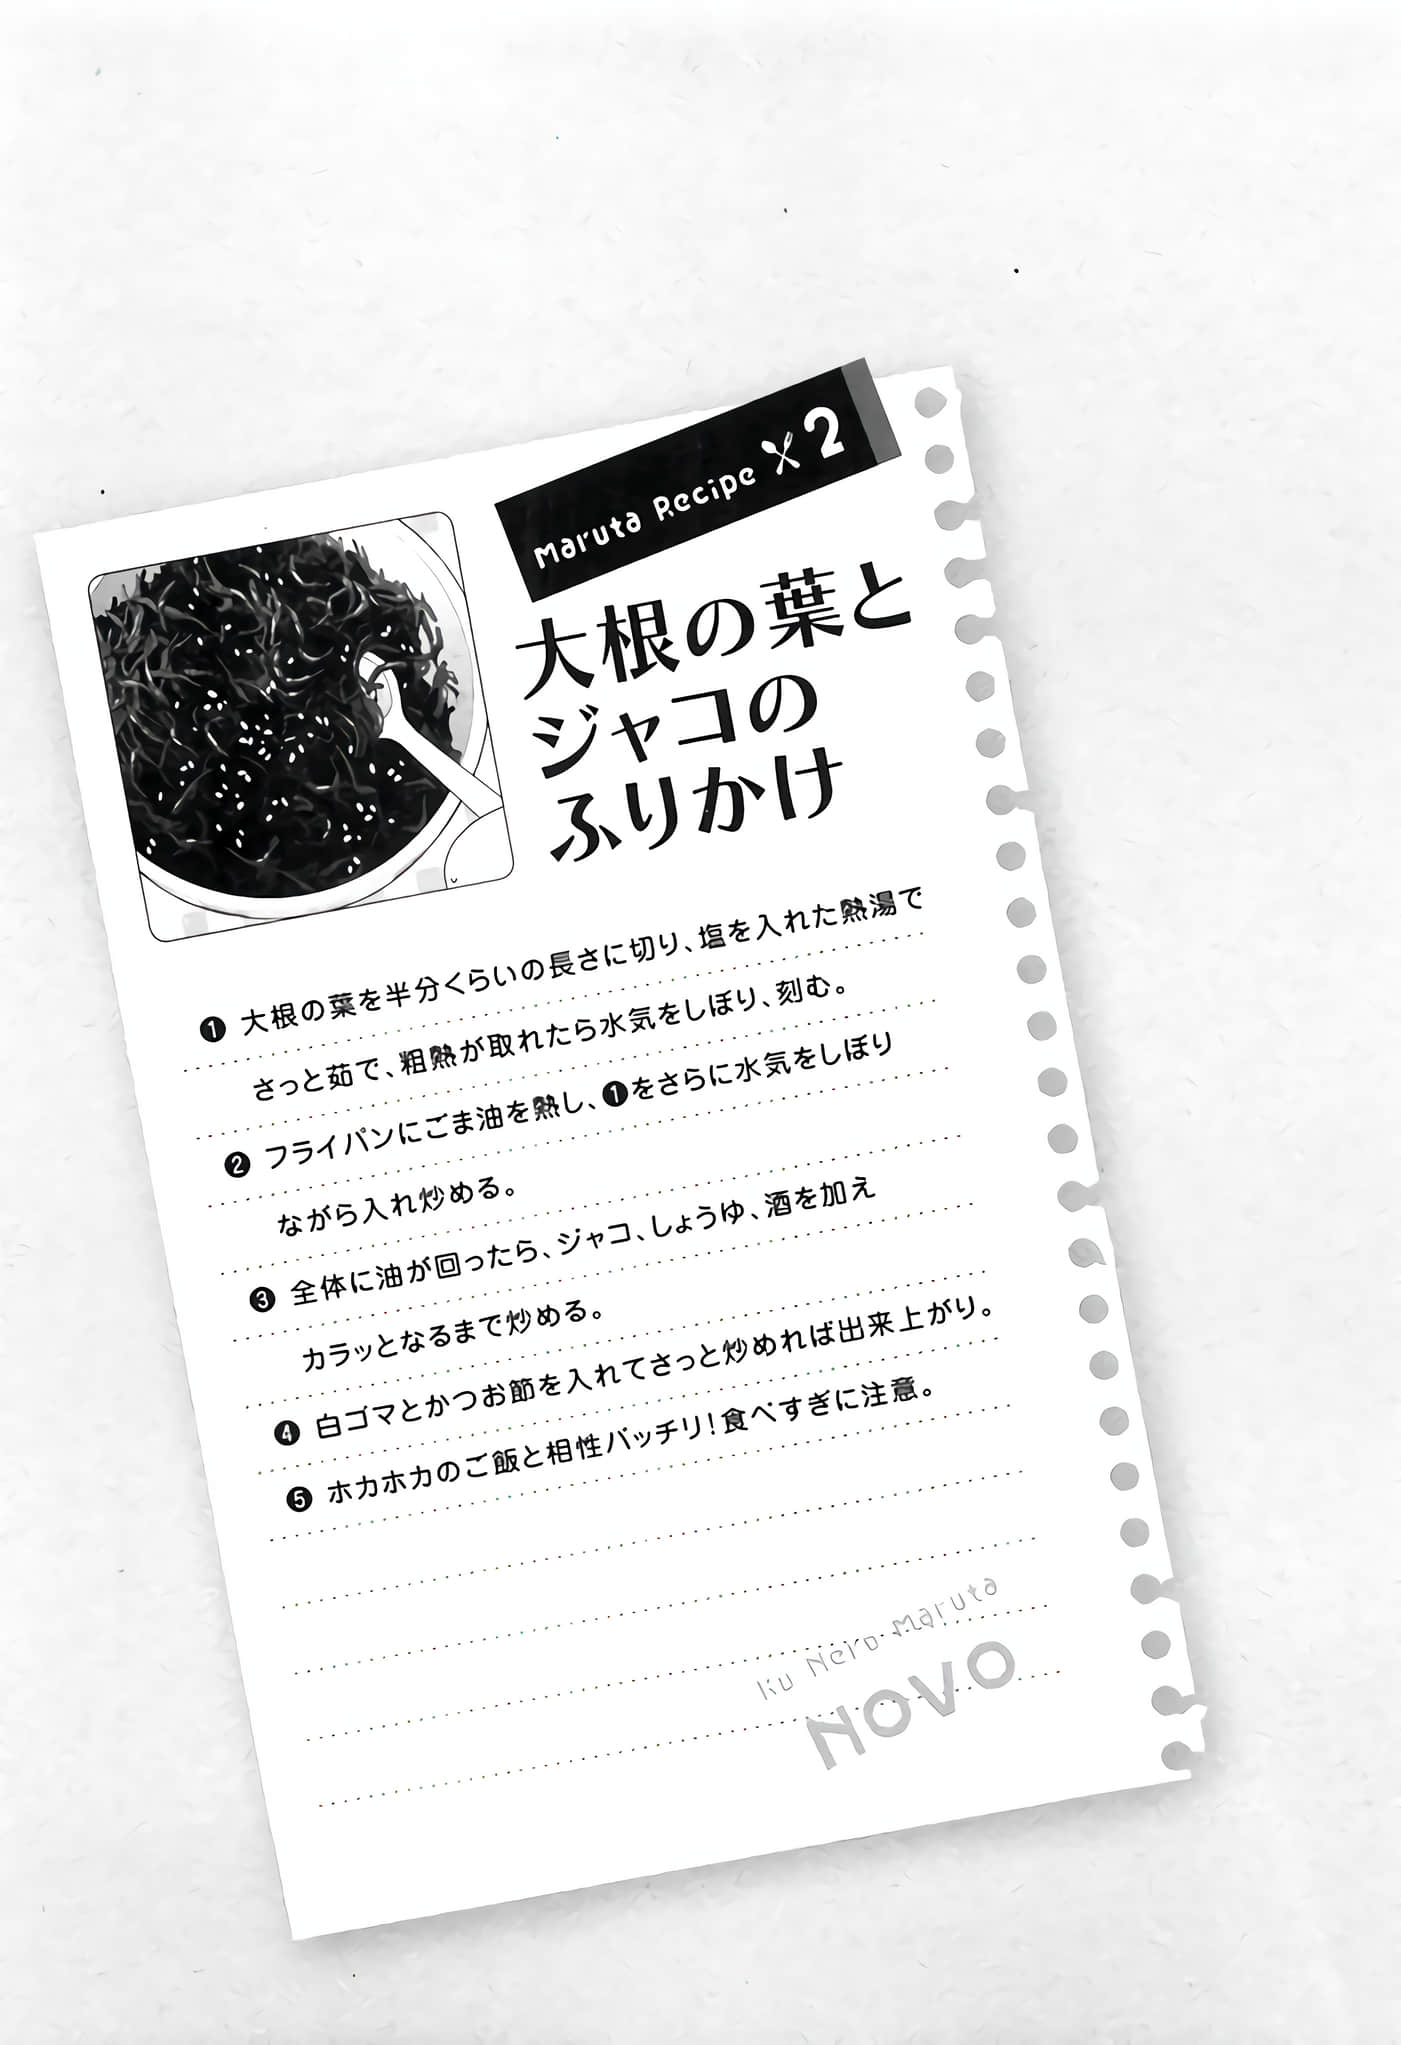 Maruta Recipe 2
大根の葉と
ジャコの
ふりかけ
❶ 大根の葉を半分くらいの長さに切り、塩を入れた熱湯で
さっと茹で、粗熱が取れたら水気をしぼり、刻む。
❷ フライパンにごま油を熱し、❶をさらに水気をしぼり
ながら入れ炒める。
❸ 全体に油が回ったら、ジャコ、しょうゆ、酒を加え
カラッとなるまで炒める。
❹ 白ゴマとかつお節を入れてさっと炒めれば出来上がり。
❺ ホカホカのご飯と相性バッチリ!食べすぎに注意。
Iku Nero Maruta
NOVO